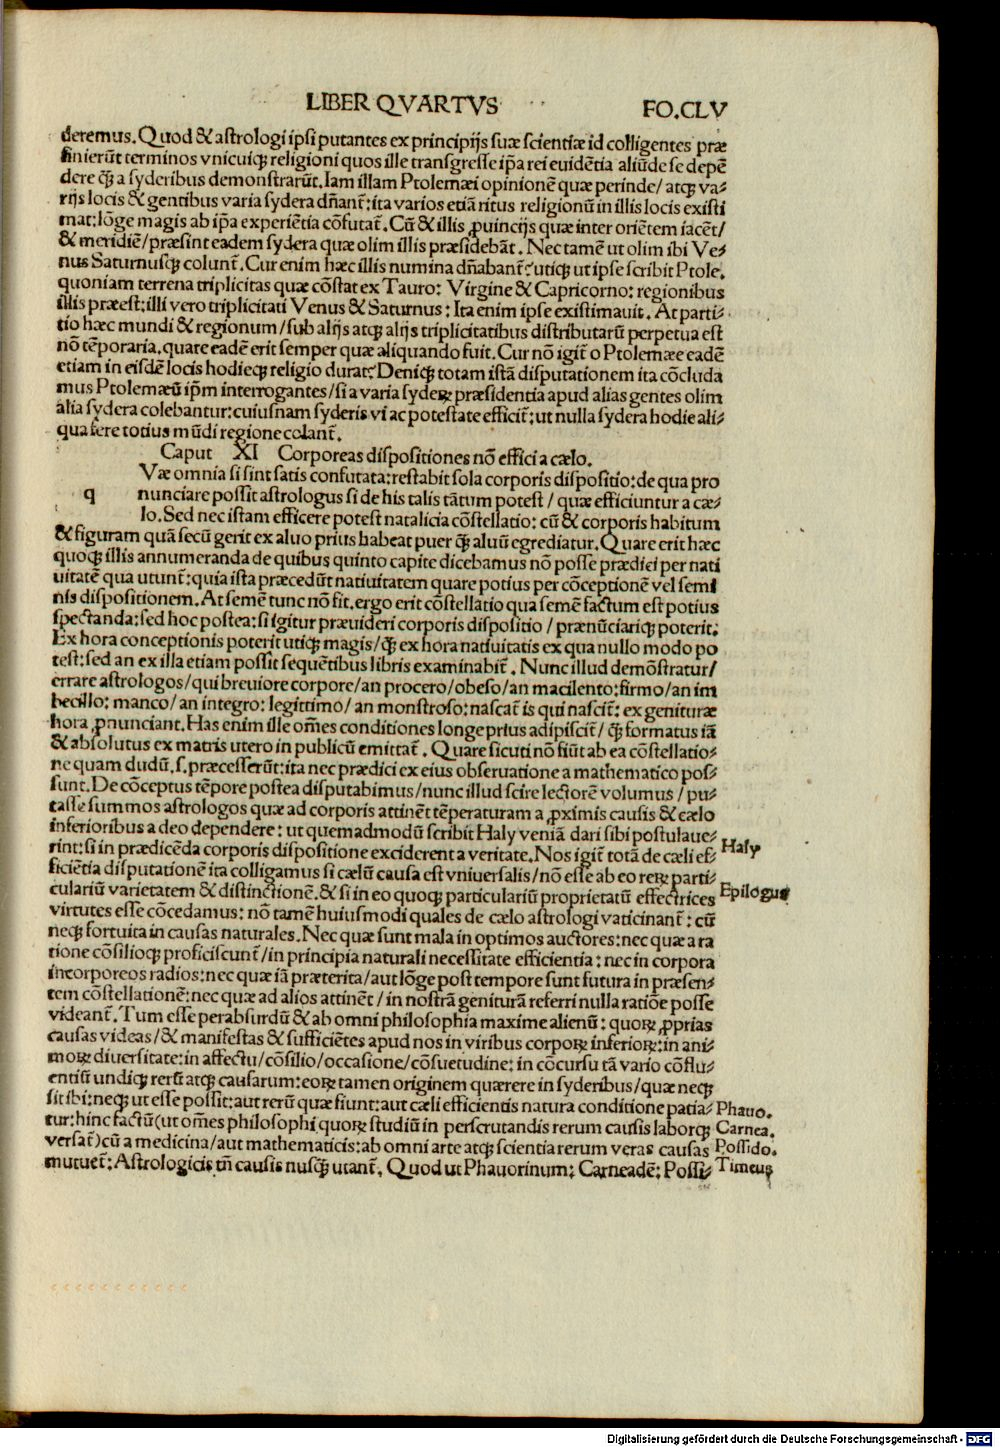 LIBER QVARTVS
FO.CLV
deremus. Quod & astrologi ipsi putantes ex principijs suæ scientiæ id colligentes præ
finierūt terminos vnicuiqꝫ religioni quos ille transgresse ip̄a rei euidētia aliūde se depē
dere q̄ꝫ a syderibus demonstrarūt. Iam illam Ptolemæi opinionē quæ perinde/ atqꝫ va⸗
rijs locis & gentibus varia sydera dn̄ant᷑: ita varios etiā ritus religionū in illis locis existi
mat: lōge magis ab ip̄a experiētia cōfutat᷑. Cū & illis ꝓuincijs quæ inter oriētem iacēt/
& meridiē/ præsint eadem sydera quæ olim illis præsidebāt. Nec tamē ut olim ibi Ve⸗
nus Saturnusqꝫ colunt᷑. Cur enim hæc illis numina dn̄abant᷑? utiqꝫ ut ipse scribit Ptole.
quoniam terrena triplicitas quæ cōstat ex Tauro: Virgine & Capricorno: regionibus
illis præest: illi vero triplicitati Venus & Saturnus: Ita enim ipse existimauit. At parti⸗
tio hæc mundi & regionum/ sub alijs atqꝫ alijs triplicitatibus distributarū perpetua est
nō tēporaria, quare eadē erit semper quæ aliquando fuit. Cur nō igit᷑ o Ptolemæe eadē
etiam in eisdē locis hodieqꝫ religio durat? Deniqꝫ totam istā disputationem ita cōcluda
mus Ptolemæū ip̄m interrogantes/ si a varia syderꝝ præsidentia apud alias gentes olim
alia sydera colebantur: cuiusnam syderis vi ac potestate efficit᷑: ut nulla sydera hodie ali⸗
qua fere totius mūdi regione colant᷑.
Caput XI Corporeas dispositiones nō effici a cælo.
Væ omnia si sint satis confutata: restabit sola corporis dispositio: de qua pro
q nunciare possit astrologus si de his talis tātum potest/ quæ efficiuntur a cæ⸗
lo. Sed nec istam efficere potest natalicia cōstellatio: cū & corporis habitum
& figuram quā secū gerit ex aluo prius habeat puer q̄ꝫ aluū egrediatur. Quare erit hæc
quoqꝫ illis annumeranda de quibus quinto capite dicebamus nō posse prædici per nati
uitatē qua utunt᷑: quia ista præcedūt natiuitatem quare potius per cōceptionē vel semi
nis dispositionem. At semē tunc nō fit. ergo erit cōstellatio qua semē factum est potius
spectanda: sed hoc postea: si igitur præuideri corporis dispositio/ prænūciariqꝫ poterit:
Ex hora conceptionis poterit utiqꝫ magis/ q̄ꝫ ex hora natiuitatis ex qua nullo modo po
test: sed an ex illa etiam possit sequētibus libris examinabit᷑. Nunc illud demōstratur/
errare astrologos/ qui breuiore corpore/ an procero/ obeso/ an macilento: firmo/ an im
becillo: manco/ an integro: legittimo/ an monstroso: nascat᷑ is qui nascit᷑: ex genituræ
hora ꝓnunciant. Has enim ille om̄es conditiones longe prius adipiscit᷑/ q̄ꝫ formatus iā
& absolutus ex matris utero in publicū emittat᷑. Quare sicuti nō fiūt ab ea cōstellatio⸗
ne quam dudū .s. præcesserūt: ita nec prædici ex eius obseruatione a mathematico pos⸗
sunt. De cōceptus tēpore postea disputabimus/ nunc illud scire lectorē volumus/ pu⸗
tasse summos astrologos quæ ad corporis attinēt tēperaturam a ꝓximis causis & cælo
inferioribus adeo dependere: ut quemadmodū scribit Haly veniā dari sibi postulaue⸗
rint: si in prædicēda corporis dispositione exciderent a veritate. Nos igit᷑ totā de cæli ef⸗
ficiētia disputationē ita colligamus si cælū causa est vniuersalis/ nō esse ab eo rerꝝ parti⸗
culariū varietatem & distinctionē. & si in eo quoqꝫ particulariū proprietatū effectrices
virtutes esse cōcedamus: nō tamē huiusmodi quales de cælo astrologi vaticinant᷑: cū
neqꝫ fortuita in causas naturales. Nec quæ sunt mala in optimos auctores: nec quæ a ra
tione cōsilioqꝫ proficiscunt᷑/ in principia naturali necessitate efficientia: nec in corpora
incorporeos radios: nec quæ iā præterita/ aut lōge post tempore sunt futura in præsen⸗
tem cōstellationē: nec quæ ad alios attinēt/ in nostrā geniturā referri nulla ratiōe posse
videant᷑. Tum esse perabsurdū & ab omni philosophia maxime alienū: quorꝝ ꝓprias
causas videas/ & manifestas & sufficiētes apud nos in viribus corporꝝ inferiorꝝ: in ani⸗
morꝝ diuersitate: in affectu/ cōsilio/ occasione/ cōsuetudine: in cōcursu tā vario cōflu⸗
entiū undiqꝫ rerū atqꝫ causarum: eorꝝ tamen originem quærere in syderibus/ quæ neqꝫ
sit ibi: neqꝫ ut esse possit: aut rerū quæ fiunt: aut cæli efficientis natura conditione patia⸗
tur: hinc factū (ut om̄es philosophi quorꝝ studiū in perscrutandis rerum causis laborqꝫ
versat᷑) cū a medicina/ aut mathematicis: ab omni arte atqꝫ scientia rerum veras causas
mutuet᷑: Astrologicis tn̄ causis nusq̄ꝫ utant᷑. Quod ut Phauorinum: Carneadē: Possi⸗
Haly
Epilogus
Phauo.
Carnea.
Possido.
Timeus
Digitalisierung gefördert durch die Deutsche Forschungsgemeinschaft - DFG